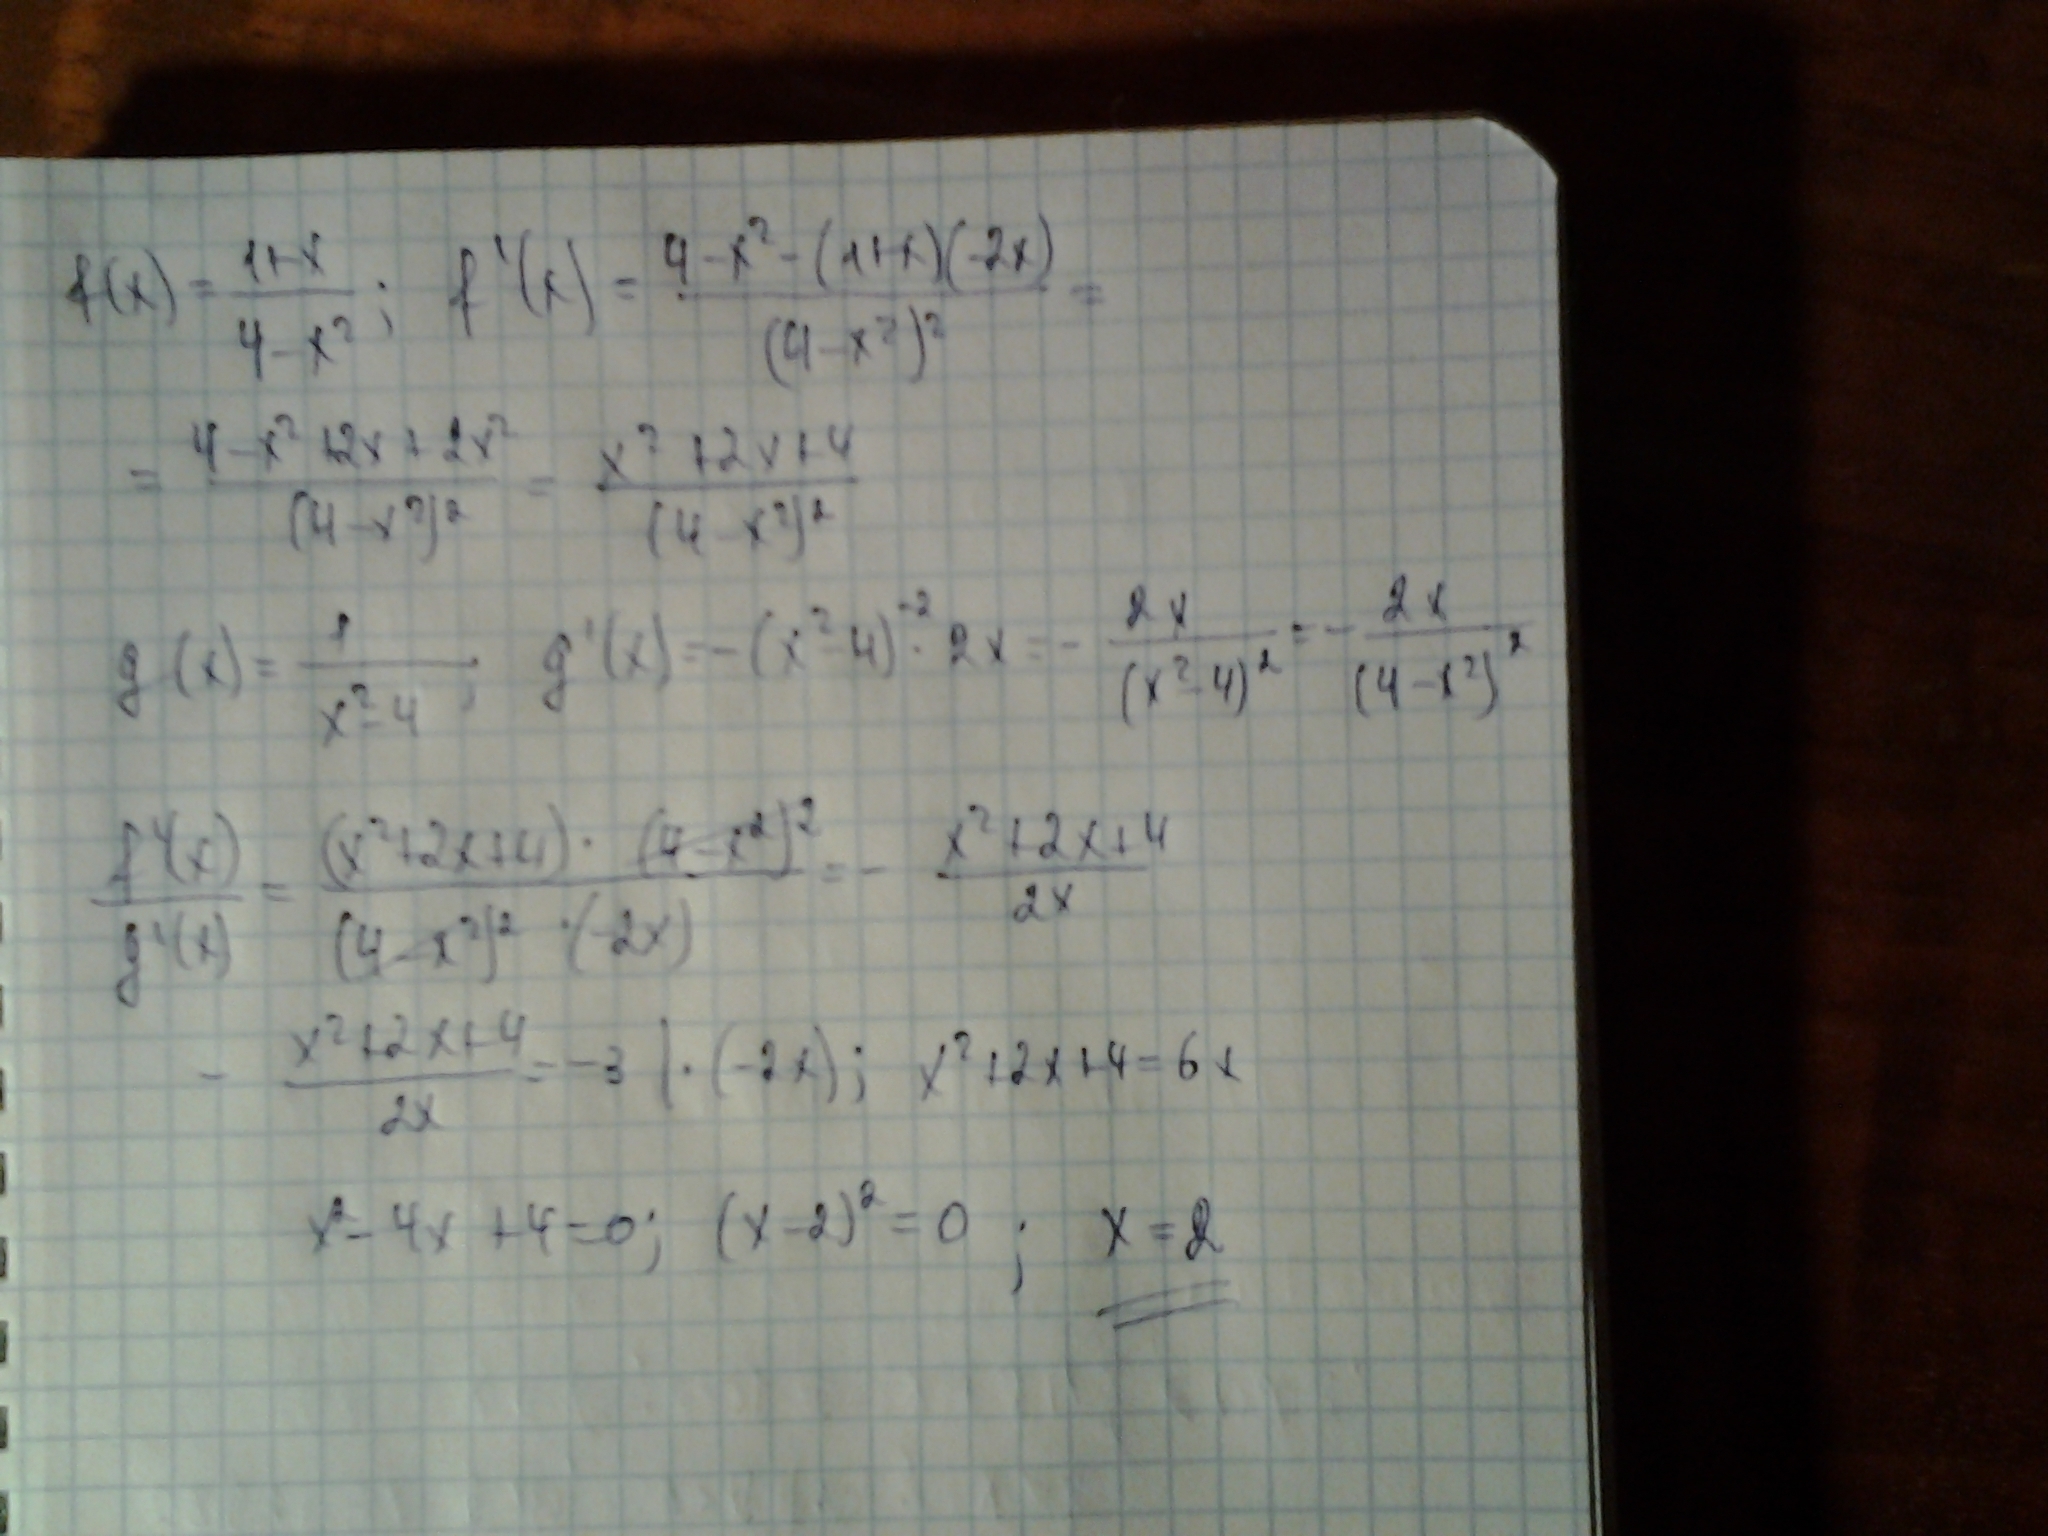 f(x) = (1+x)/(4-x²); f'(x) = (4-x²-(1+x)(-2x))/((4-x²)²) =
= (4-x²+2x+2x²)/((4-x²)²) = (x²+2x+4)/((4-x²)²)
g(x) = 1/(x²-4); g'(x) = -(x²-4)⁻²·2x = -2x/((x²-4)²) = -2x/((4-x²)²)
f'(x)/g'(x) = ((x²+2x+4)·(4-x²)²)/((4-x²)²·(-2x)) = -(x²+2x+4)/(2x)
-(x²+2x+4)/(2x) = -3 |·(-2x); x²+2x+4=6x
x²-4x+4=0; (x-2)²=0; x=2